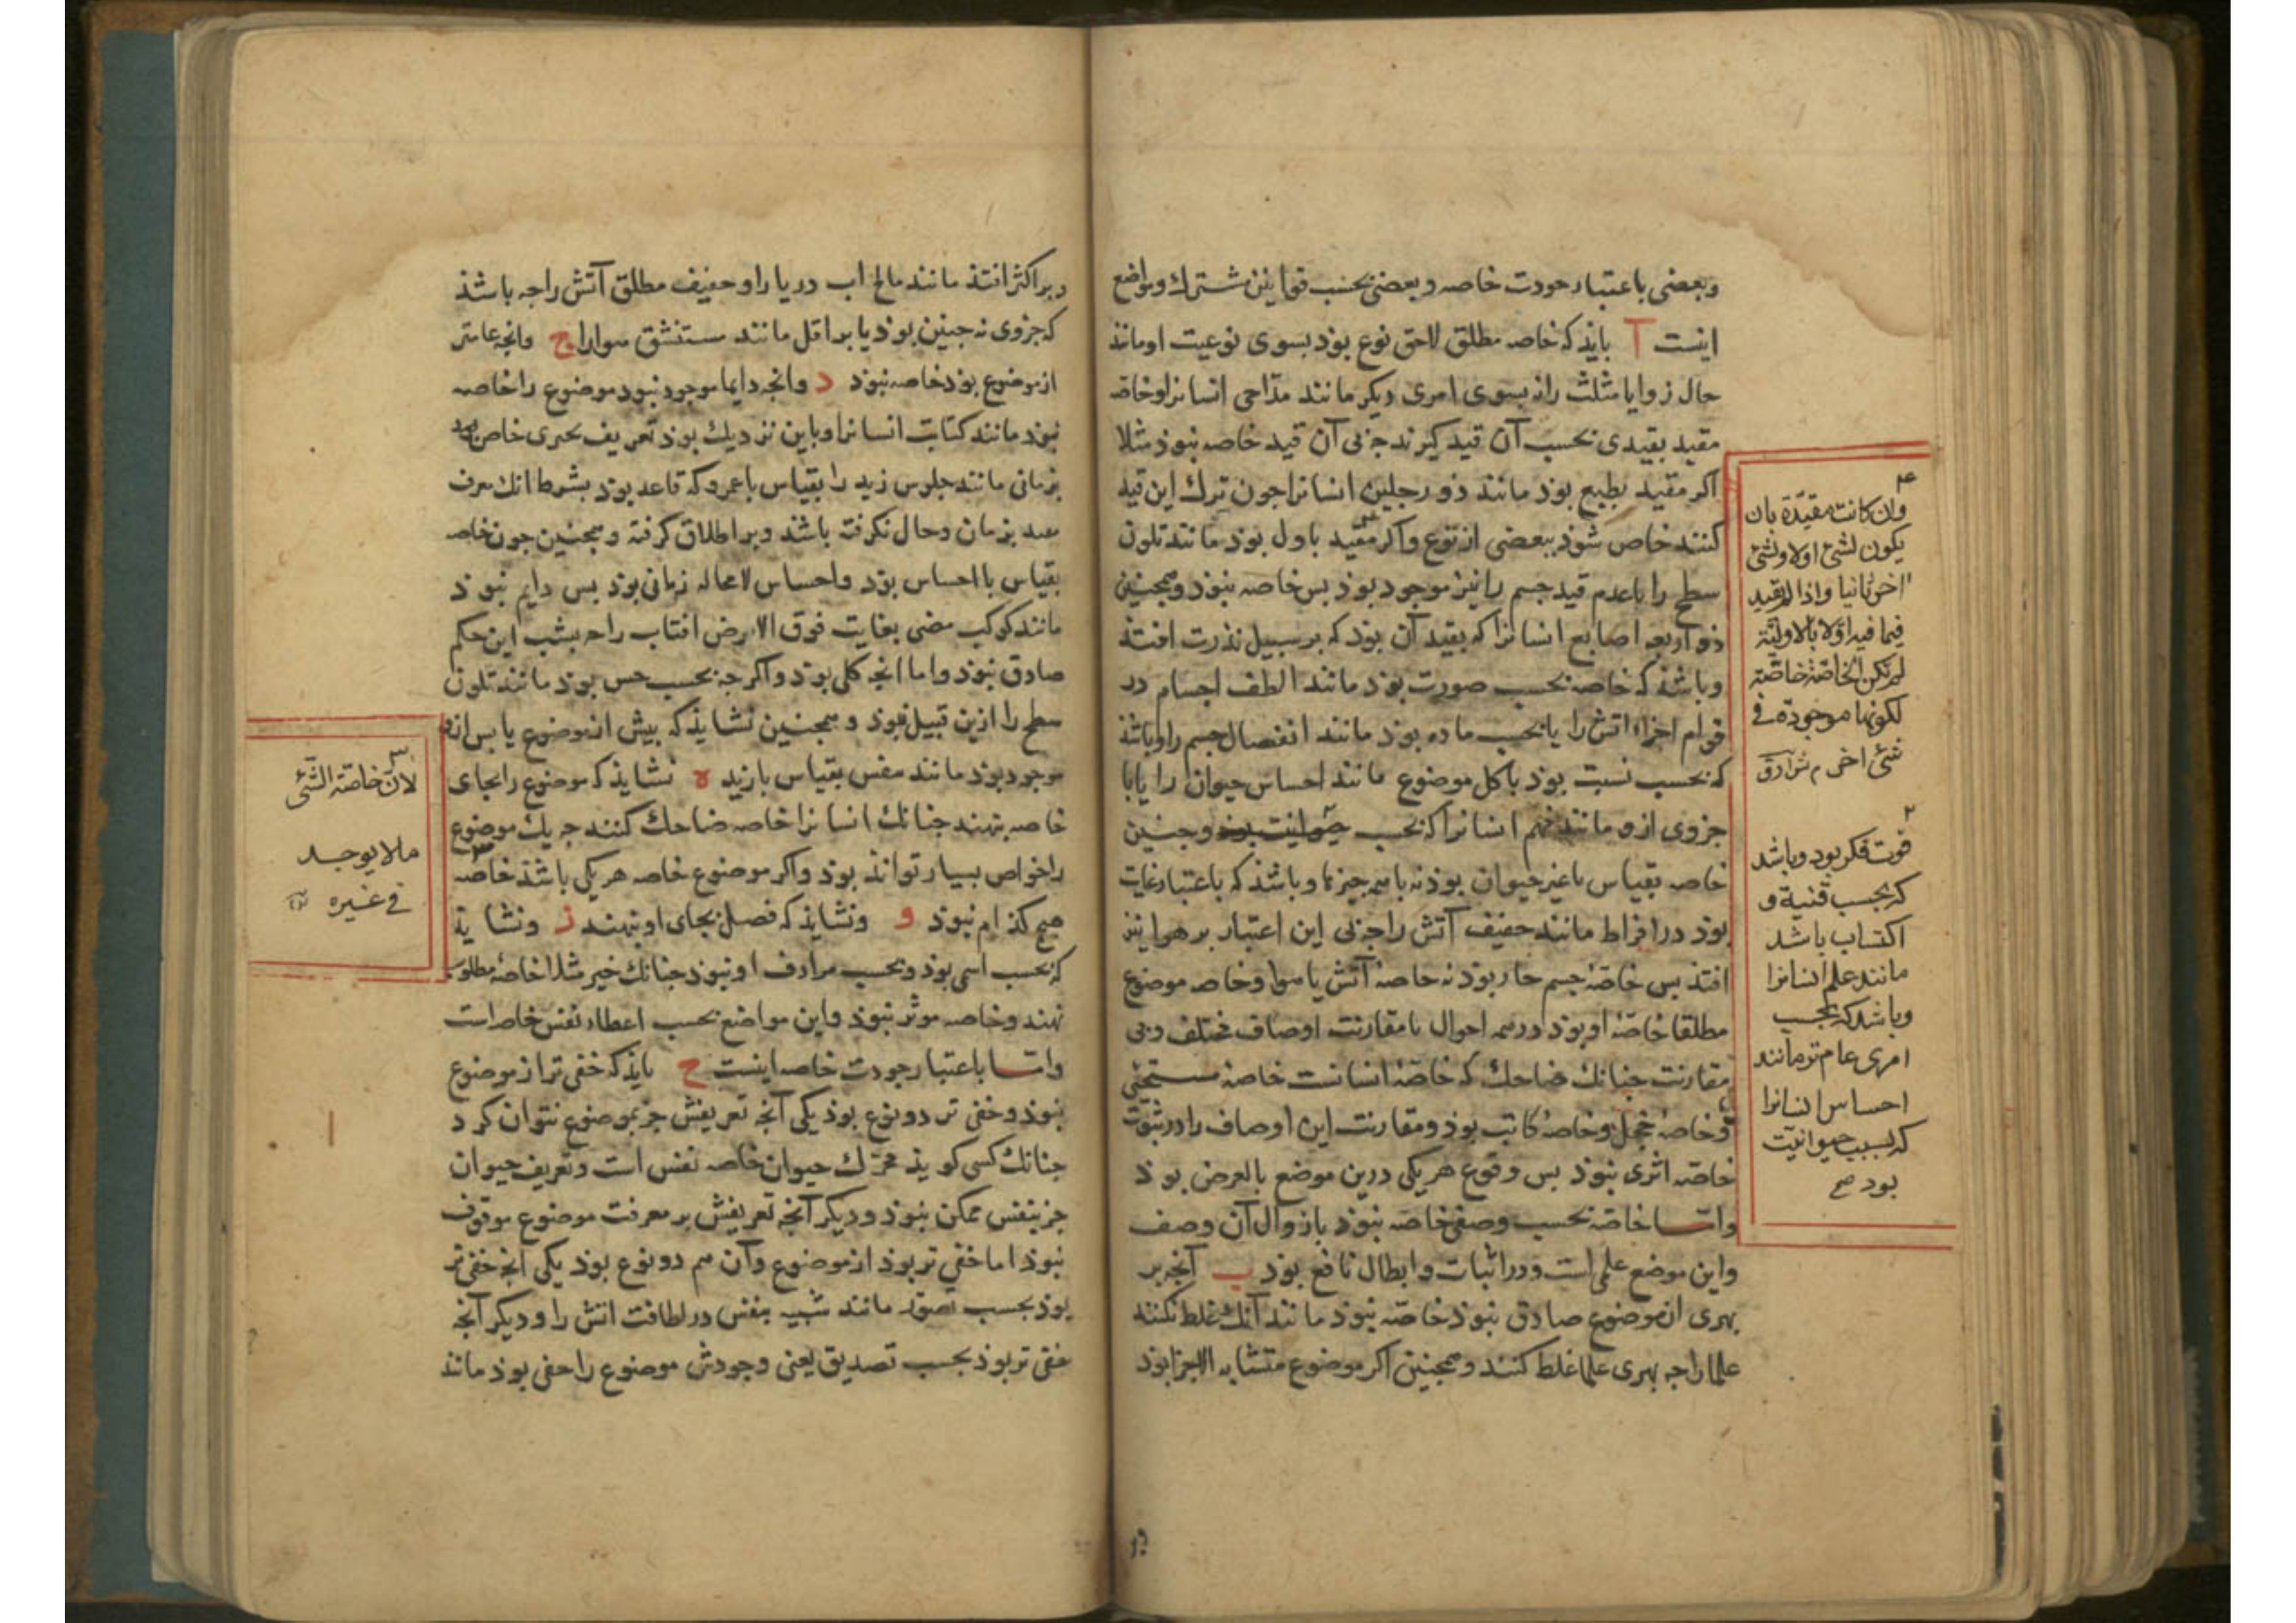 وبعضی باعتبار جودت خاصه وبعضی بحسب قوانین مشترك ومواضع
اینست آ بایذ که خاصه مطلق لاحق نوع بوذ بسوی نوعیت او مانند
حال زوایا مثلث را نه بسوی امری دیکر مانند ملاحی انسانرا وخاصه
مقید بقیدی بحسب آن قید کیرند جه بی آن قید خاصه نبوذ مثلا
اکر مقید بطبع بوذ مانند ذو رجلین انسانرا جون ترك این قید
کنند خاص شوذ ببعضی از نوع واکر مقید باول بوذ مانند تلون
سطح را باعدم قید جسم را نیز موجود بوذ بس خاصه نبوذ وهمجنین
ذو اربعه اصابع انسانرا که بقید آن بوذ که برسبیل ندرت افتذ
وباشذ که خاصه بحسب صورت بوذ مانند الطف اجسام در
قوام اجزاء اتش را یا بحسب ماده بوذ مانند انفصال جسم را وباشذ
که بحسب نسبت بوذ باکل موضوع مانند احساس حیوان را یا با
جزوی ازو مانند فهم انسانرا که بحسب حیوانیت بوذ وجنین
خاصه بقیاس باغیر حیوان بوذ نه باهمه جیزها وباشذ که باعتبار غایت
بوذ در افراط مانند خفیف آتش را جه بی این اعتبار بر هوا نیز
افتذ بس خاصهٔ جسم حار بوذ نه خاصهٔ آتش یا هوا وخاصه موضوع
مطلقا خاصهٔ او بوذ در همه احوال بامقارنت اوصاف مختلف وبی
مقارنت جنانك ضاحك که خاصهٔ انسانست خاصهٔ مستحیی
وخاصهٔ خجل وخاصهٔ کاتب بوذ ومقارنت این اوصاف را در ثبوت
خاصه اثری نبوذ بس وقوع هریکی درین موضع بالعرض بوذ
واما خاصه بحسب وصفی خاصه نبوذ با زوال آن وصف
واین موضع علمی است ودر اثبات وابطال نافع بوذ ب آنجه بر
بهری از موضوع صادق نبوذ خاصه نبوذ مانند آنك غلط نکنند
علما را جه بهری علما غلط کنند وهمجنین اکر موضوع متشابه الاجزا بوذ
وان کانت مقیّدة بان
یکون لشئ اولا ولشئ
اخر ثانیا واذا لم یقید
فیما فیه اوّلا بالاولیّة
لم تکن الخاصّة خاصّة
لکونها موجودة فی
شئ اخر م
قوت فکر بود وباشد
که بحسب قنیة و
اکتساب باشد
مانند علم انسانرا
وباشد که بحسب
امری عام تر مانند
احساس انسانرا
که بسبب حیوانیت
بود صح
وبر اکثر افتذ مانند مالح اب دریا را وخفیف مطلق آتش را جه باشذ
که جزوی نه جنین بوذ یا بر اقل مانند مستنشق هوا را ج وانجه عامتر
از موضوع بوذ خاصه نبوذ د وانجه دایما موجود نبود موضوع را خاصه
نبوذ مانند کتابت انسانرا وباین نزدیك بوذ تعریف بجیزی خاص بوذ
بزمانی مانند جلوس زید را بقیاس باعمرو که قاعد بوذ بشرط انك معرف
مقید بزمان وحال نکرفته باشذ وبر اطلاق کرفته وهمجنین جون خاصه
بقیاس بااحساس بوذ واحساس لامحاله زمانی بوذ بس دایم نبوذ
مانند کوکب مضی بغایت فوق الارض افتاب را جه بشب این حکم
صادق نبوذ واما انجه کلی بوذ واکرجه بحسب حس بوذ مانند تلون
سطح را ازین قبیل نبوذ وهمجنین نشایذ که بیش از موضوع یا بس ازو
موجود بوذ مانند مفس بقیاس بازید ه نشایذ که موضوع را بجای
خاصه بنهند جنانك انسانرا خاصه ضاحك کنند جه یك موضوع
را خواص بسیار تواند بوذ واکر موضوع خاصه هریکی باشذ خاصه
هیج کذام نبوذ و ونشایذ که فصل بجای او بنهند ز ونشایذ
که بحسب اسمی بوذ وبحسب مرادف او نبوذ جنانك خیر مثلا خاصهٔ مطلوب
نهند وخاصه موثر نبوذ واین مواضع بحسب اعطاء نفس خاصه است
واما باعتبار جودت خاصه اینست ح بایذ که خفی تر از موضوع
نبوذ وخفی تر دو نوع بوذ یکی آنجه تعریفش جز بموضوع نتوان کرد
جنانك کسی کویذ محرّك حیوان خاصه نفس است وتعریف حیوان
جز بنفس ممکن نبوذ ودیکر آنجه تعریفش بر معرفت موضوع موقوف
نبوذ اما خفی تر بوذ از موضوع وآن هم دو نوع بوذ یکی آنجه خفی تر
بوذ بحسب تصوّر مانند شبیه بنفس در لطافت اتش را ودیکر آنجه
خفی تر بوذ بحسب تصدیق یعنی وجودش موضوع را خفی بوذ مانند
لانّ خاصّة الشئ
ما لا یوجد
فی غیره